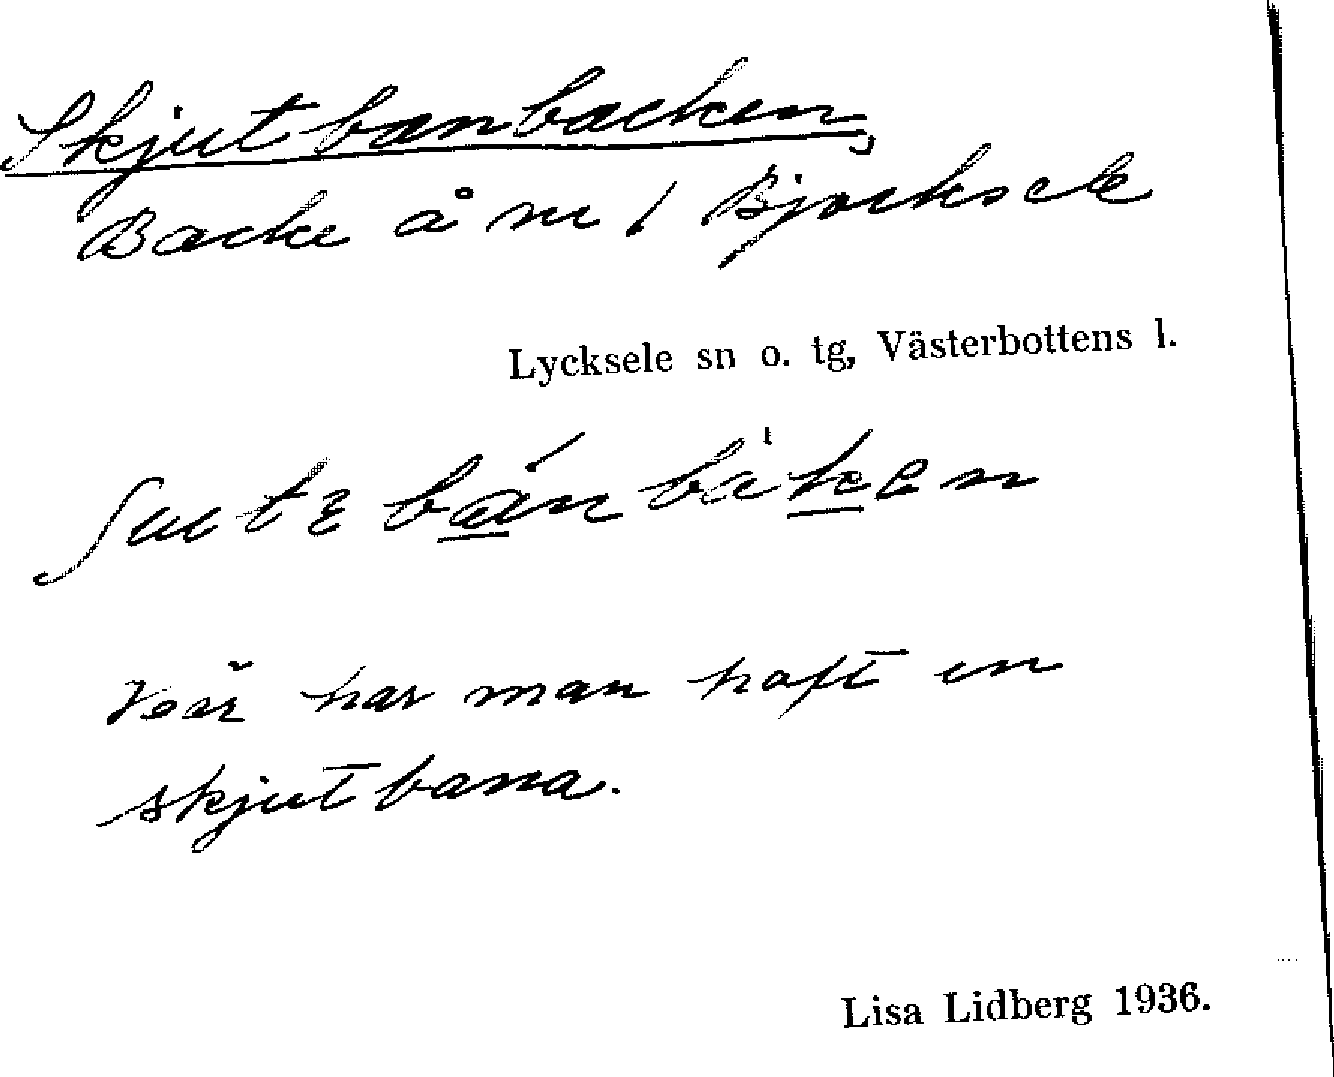 Skjutbanbacken,
Backe å nr 1 Bjorksele
Lycksele sn o. tg, Västerbottens l.
har man haft en
skjutbana.
Lisa Lidberg 1936.